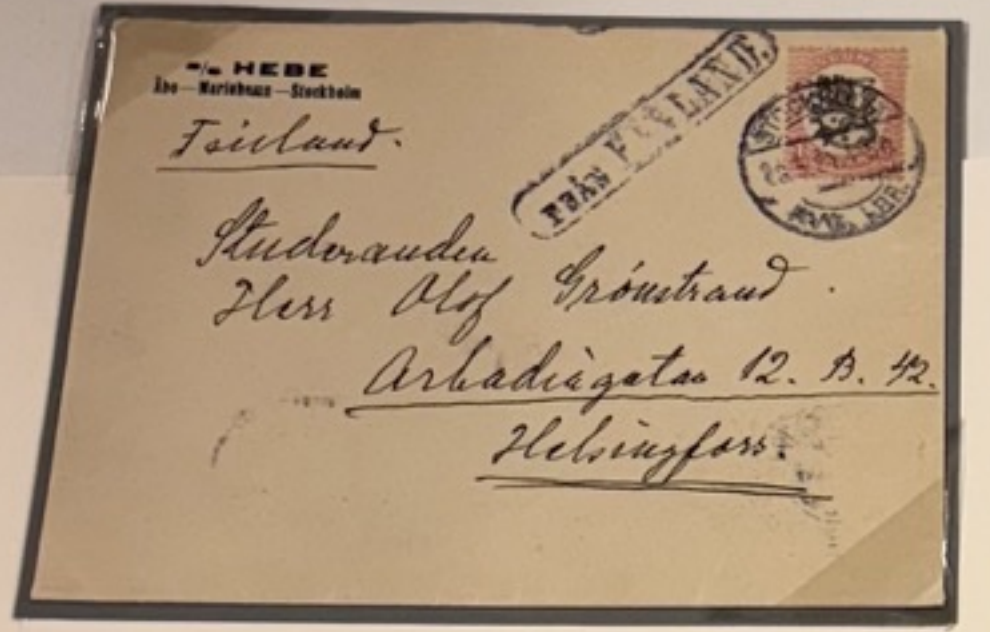 S/S HEBE
Åbo—Mariehamn—Stockholm
FRÅN FINLAND.
Finland.
Studeranden
Herr Olof Grönstrand
Arkadiagatan 12. B. 42.
Helsingfors.